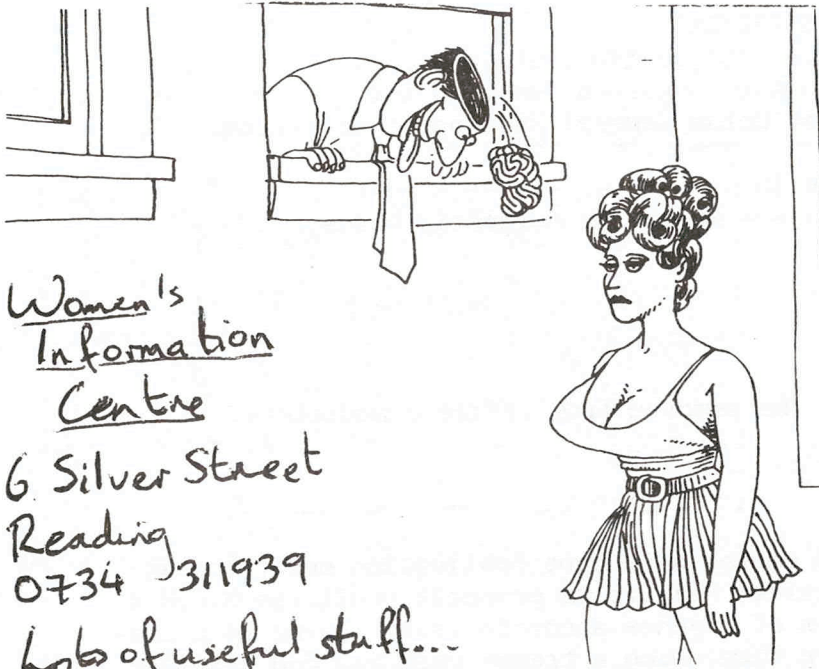 Women's
Information
Centre
6 Silver Street
Reading
0734 311939
Lots of useful stuff...